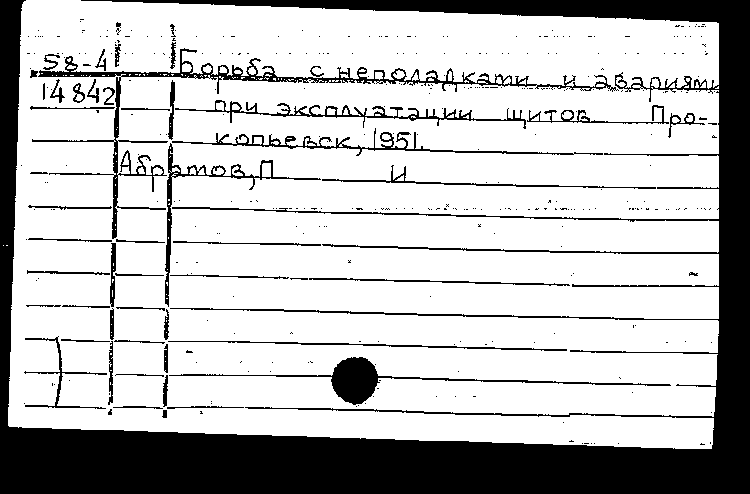 58-4 Борьба с неполадками и авариями
14842 при эксплуатации щитов Про-
копьевск, 1951.
Абрамов, П И